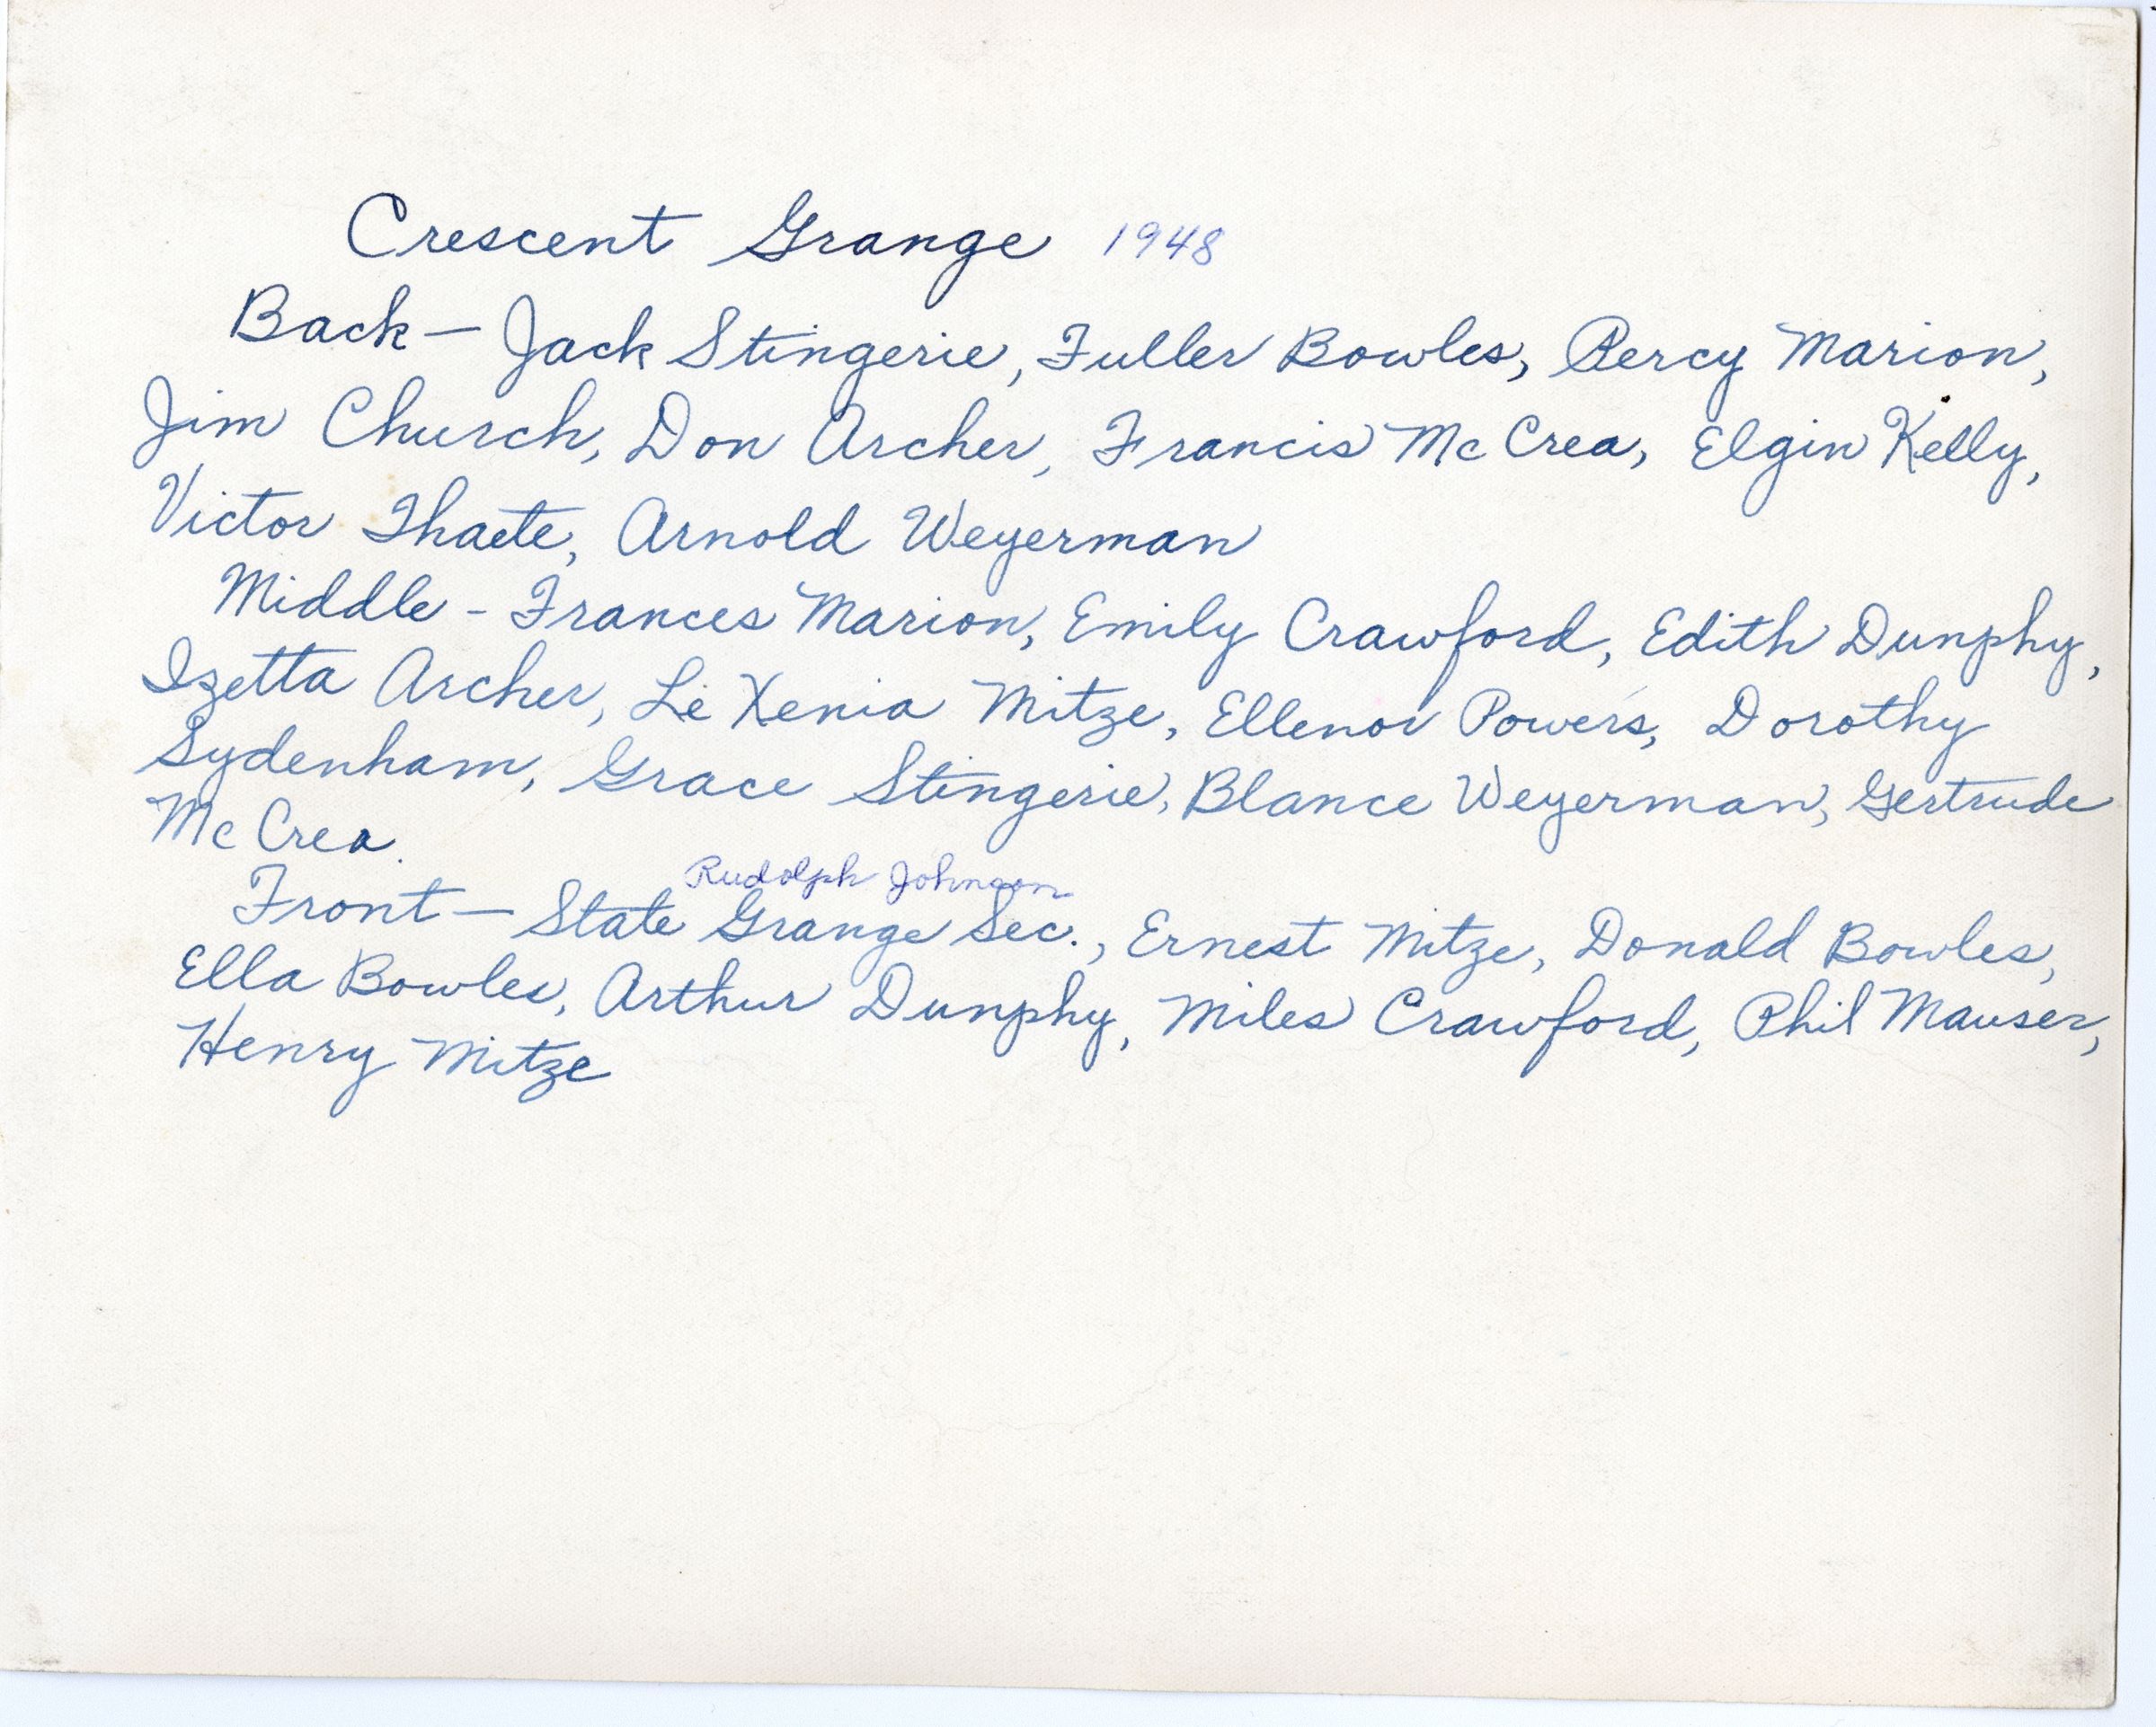 Crescent Grange 1948
Back - Jack Stingerie, Fuller Bowles, Percy Marion,
Jim Church, Don Archer, Francis McCrea, Elgin Kelly,
Victor Thaete, Arnold Weyerman
Middle - Frances Marion, Emily Crawford, Edith Dunphy,
Izetta Archer, Le Xenia Mitze, Ellenor Powers, Dorothy
Sydenham, Grace Stingerie, Blance Weyerman, Gertrude
McCrea.
Rudolph Johnson
Front - State Grange Sec., Ernest Mitze, Donald Bowles,
Ella Bowles, Arthur Dunphy, Miles Crawford, Phil Mauser,
Henry Mitze